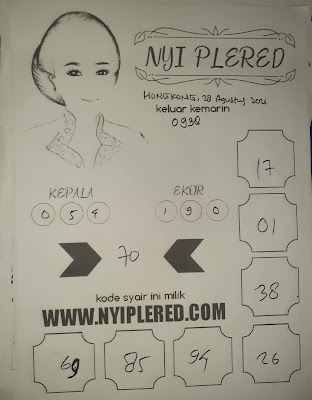 NYI PLERED
HONGKONG, 28 Agustus 2021
keluar kemarin
0930
17
KEPALA
EKOR
0 5 9
1 9 0
01
70
38
kode syair ini milik
WWW.NYIPLERED.COM
69
85
94
26